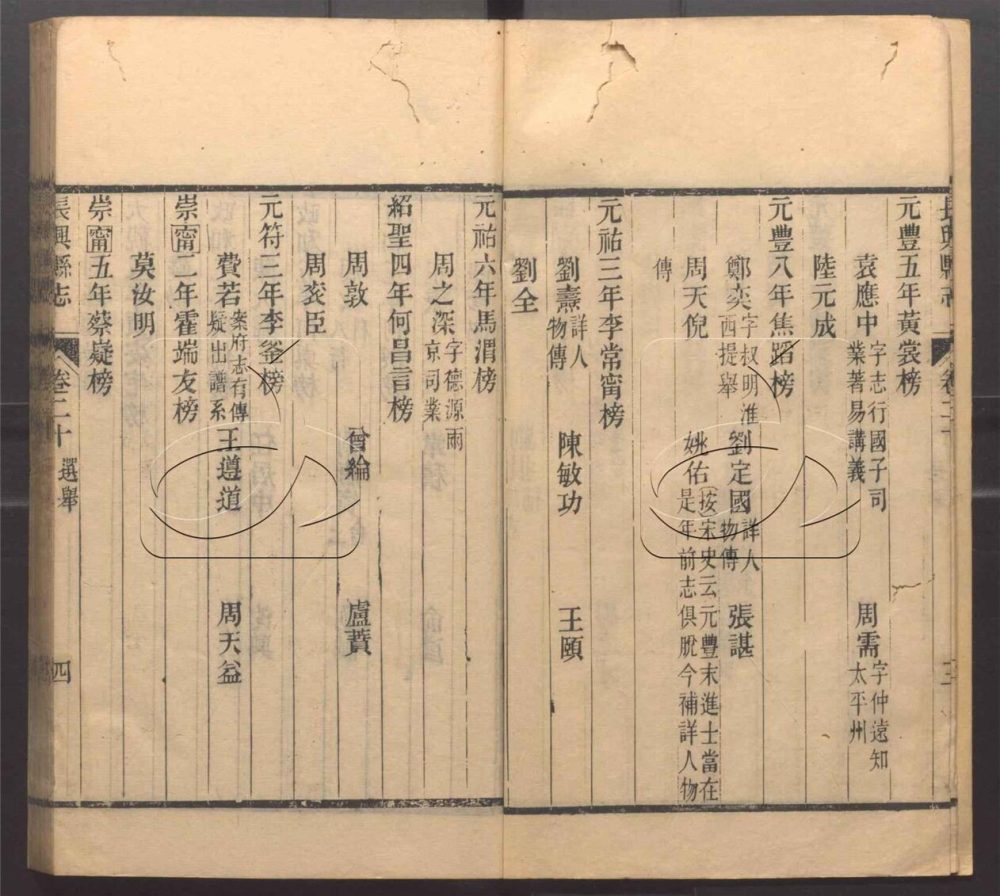 元豐五年黃裳榜
袁應中 字志行國子司業著易講義 周需 字仲遠知太平州
陸元成
元豐八年焦蹈榜
鄭奕 字叔明淮西提舉 劉定國 詳人物傳 張諶
周天倪 姚佑 (按宋史云元豐末進士當在是年前志俱脫今補詳人物
傳
元祐三年李常甯榜
劉燾 詳人物傳 陳敏功 王頤
劉全
元祐六年馬涓榜
周之深 字德源雨京司業
紹聖四年何昌言榜
周敦 曾綸 盧蕡
周衮臣
元符三年李釜榜
費若 案府志有傳疑出譜系 王遵道 周天益
崇甯二年霍端友榜
莫汝明
崇甯五年蔡嶷榜
長興縣志 卷二十 選舉 四